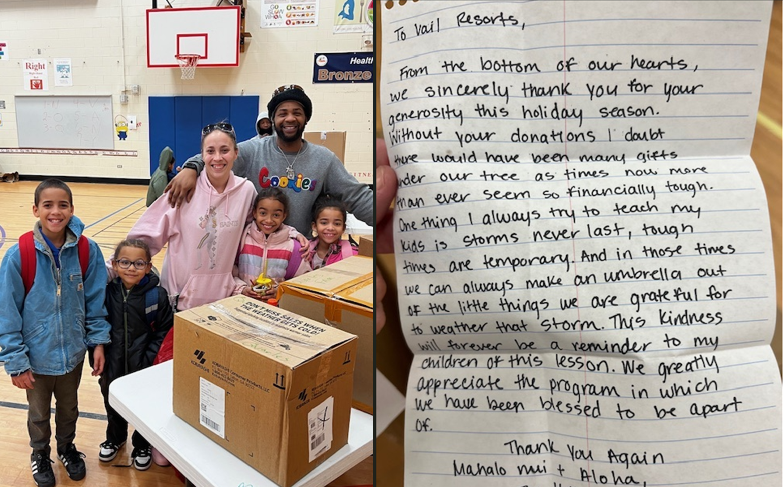 Right
Health
Bronze
Cookies
DON'T MISS SALES WHEN
THE WEATHER GETS COLD!
To Vail Resorts,
From the bottom of our hearts,
we sincerely thank you for your
generosity this holiday season.
Without your donations I doubt
there would have been many gifts
under our tree as times now more
than ever seem so financially tough.
One thing I always try to teach my
kids is storms never last, tough
times are temporary. And in those times
we can always make an umbrella out
of the little things we are grateful for
to weather that storm. This kindness
will forever be a reminder to my
children of this lesson. We greatly
appreciate the program in which
we have been blessed to be apart
of.
Thank You Again
Mahalo nui + Aloha,